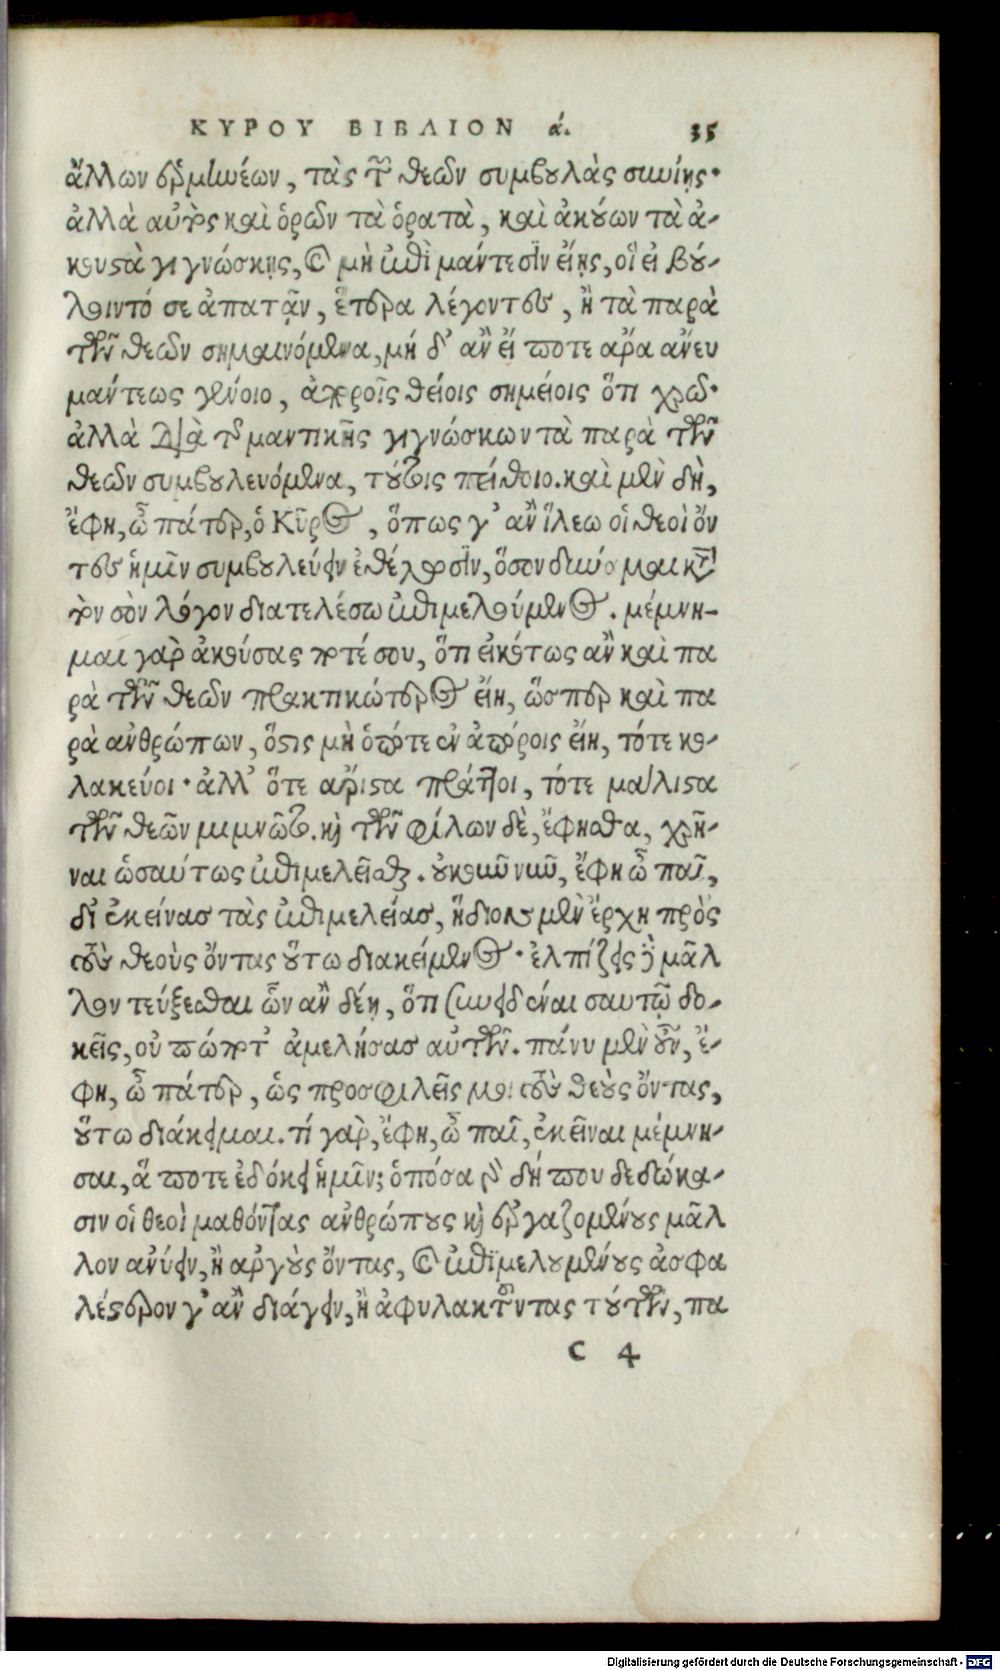 ΚΥΡΟΥ ΒΙΒΛΙΟΝ ά. 35
ἄλλων ἑρμηνέων, τὰς τῶν θεῶν συμβουλὰς συνίῃς·
ἀλλὰ αὐτὸς καὶ ὁρῶν τὰ ὁρατὰ, καὶ ἀκούων τὰ ἀ-
κουστὰ γιγνώσκῃς, καὶ μὴ ἐπὶ μάντεσιν εἴης, οἳ εἰ βού-
λοιντό σε ἀπατᾷν, ἕτερα λέγοντες, ἢ τὰ παρὰ
τῶν θεῶν σημαινόμενα, μή δ' ἂν εἴ ποτε ἄρα ἄνευ
μάντεως γένοιο, ἀποροῖς θείοις σημείοις ὅτι χρῶ·
ἀλλὰ διὰ τῆς μαντικῆς γιγνώσκων τὰ παρὰ τῶν
θεῶν συμβουλευόμενα, τούτοις πείθοιο. καὶ μὲν δὴ,
ἔφη, ὦ πάτερ, ὁ Κῦρος, ὅπως γ' ἂν ἵλεω οἱ θεοὶ ὄν
τες ἡμῖν συμβουλεύειν ἐθέλωσιν, ὅσον δύναμαι κατὰ
τὸν σὸν λόγον διατελέσω ἐπιμελούμενος. μέμνη-
μαι γὰρ ἀκούσας ποτέ σου, ὅτι εἰκότως ἂν καὶ πα
ρὰ τῶν θεῶν πρακτικώτερος εἴη, ὥσπερ καὶ πα
ρὰ ἀνθρώπων, ὅστις μὴ ὁπότε ἐν ἀπόροις εἴη, τότε κο-
λακεύοι· ἀλλ' ὅτε ἄριστα πράττοι, τότε μάλιστα
τῶν θεῶν μεμνῷτο. καὶ τῶν φίλων δὲ, ἔφησθα, χρῆ-
ναι ὡσαύτως ἐπιμελεῖσθαι. οὐκοῦν νῦν, ἔφη ὦ παῖ,
δι' ἐκείνας τὰς ἐπιμελείας, ἥδιον μὲν ἔρχῃ πρὸς
τοὺς θεοὺς ὄντας οὕτω διακείμενος· ἐλπίζεις δὲ μᾶλ
λον τεύξεσθαι ὧν ἂν δέῃ, ὅτι συνειδέναι σαυτῷ δο-
κεῖς, οὐ πώποτ' ἀμελήσας αὐτῶν. πάνυ μὲν οὖν, ἔ-
φη, ὦ πάτερ, ὡς προσφιλεῖς μοι τοὺς θεοὺς ὄντας,
οὕτω διάκειμαι. τί γὰρ, ἔφη, ὦ παῖ, ἐκεῖναι μέμνη-
σαι, ἅ ποτε ἐδόκει ἡμῖν; ὁπόσα γὰρ δή που δεδώκα-
σιν οἱ θεοὶ μαθόντας ἀνθρώπους καὶ ἐργαζομένους μᾶλ
λον ἀνύειν, ἢ ἀργοὺς ὄντας, καὶ ἐπιμελουμένους ἀσφα
λέστερον γ' ἂν διάγειν, ἢ ἀφυλακτοῦντας τούτων, πα
C 4
Digitalisierung gefördert durch die Deutsche Forschungsgemeinschaft - DFG